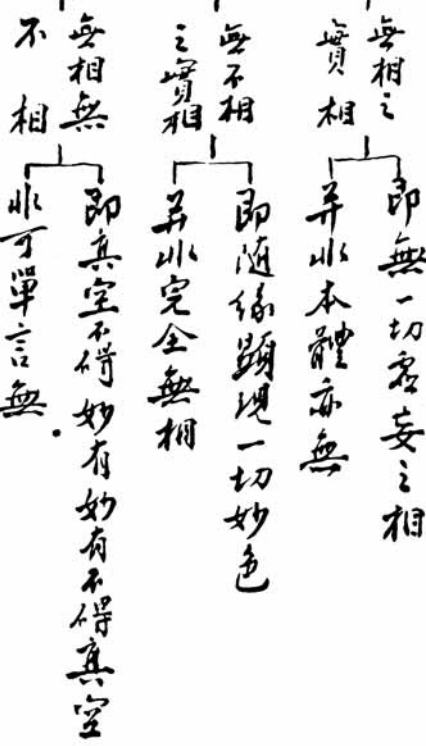 無相之
實相
即無一切虛妄之相
并非本體亦無
無不相
之實相
即隨緣顯現一切妙色
并非完全無相
無相無
不相
即真空不碍妙有妙有不碍真空
非可單言無。